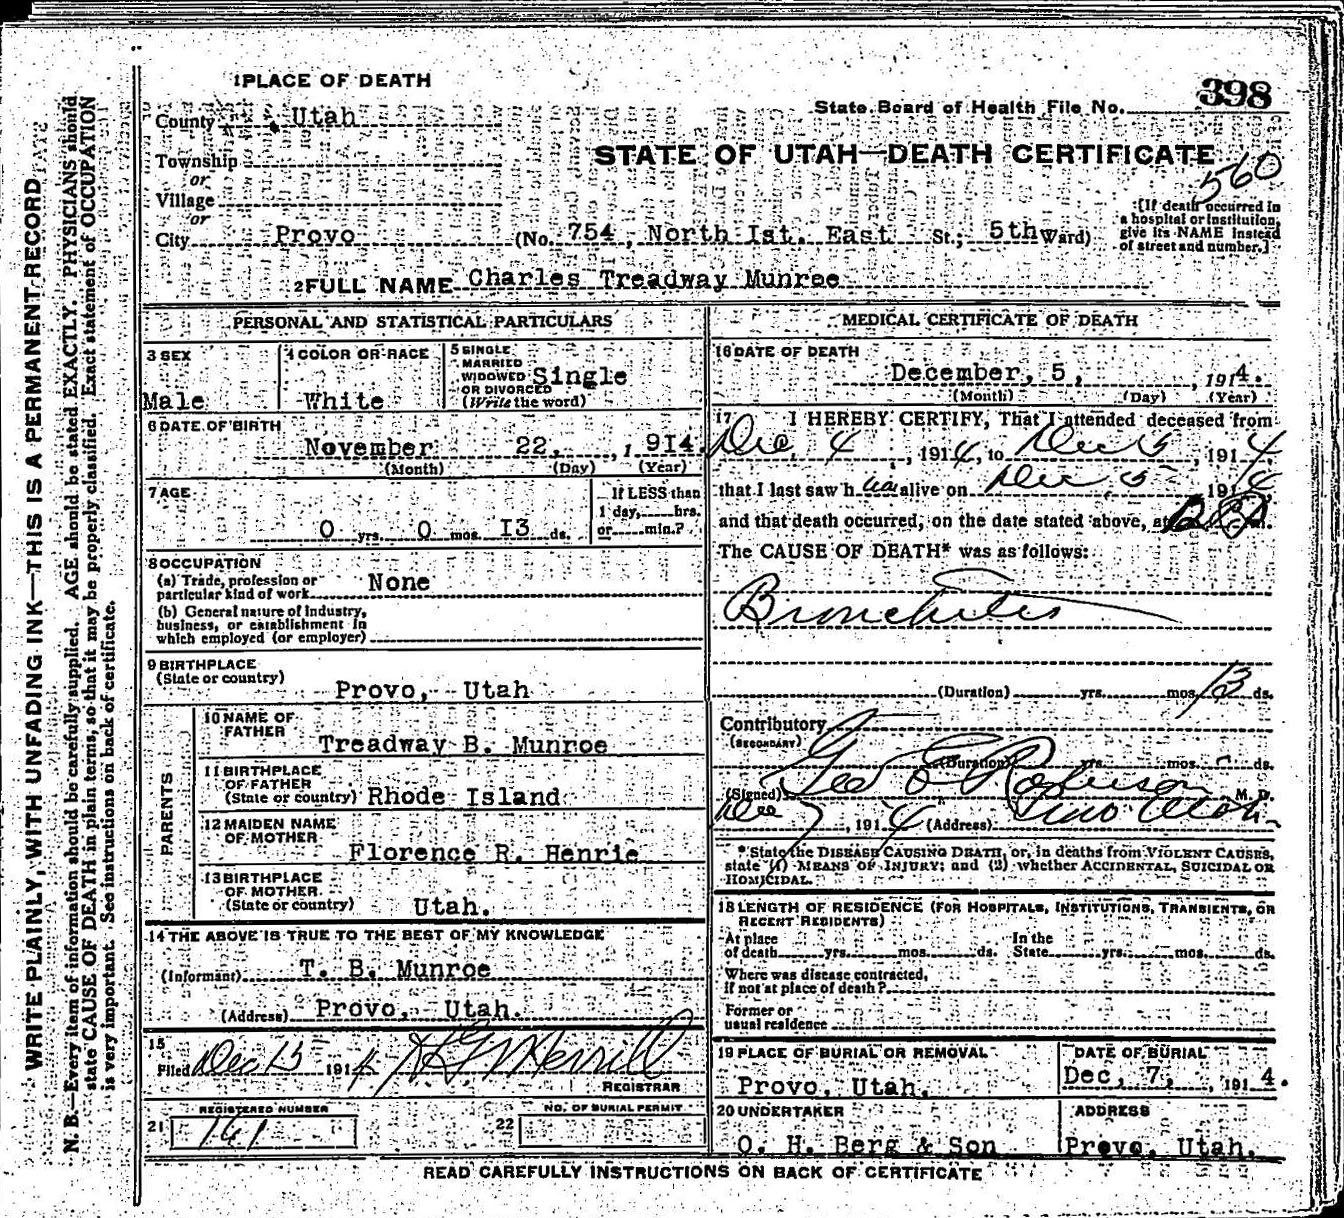 1 PLACE OF DEATH
398
State Board of Health File No.
County Utah
STATE OF UTAH—DEATH CERTIFICATE
560
Township
or
Village
or
City Provo (No. 754, North Ist. East St.; 5th Ward)
[If death occurred in
a hospital or institution,
give its NAME instead
of street and number.]
2 FULL NAME Charles Treadway Munroe
PERSONAL AND STATISTICAL PARTICULARS
3 SEX
Male
4 COLOR OR RACE
White
5 SINGLE
MARRIED
WIDOWED
OR DIVORCED
(Write the word)
Single
6 DATE OF BIRTH
November 22, , 1 9I4.
(Month) (Day) (Year)
7 AGE
0 yrs. 0 mos. I3 ds.
If LESS than
1 day, hrs.
or min.?
8 OCCUPATION
(a) Trade, profession or
particular kind of work None
(b) General nature of industry,
business, or establishment in
which employed (or employer)
9 BIRTHPLACE
(State or country)
Provo, Utah
PARENTS
10 NAME OF
FATHER
Treadway B. Munroe
11 BIRTHPLACE
OF FATHER
(State or country) Rhode Island
12 MAIDEN NAME
OF MOTHER
Florence R. Henrie
13 BIRTHPLACE
OF MOTHER
(State or country) Utah.
14 THE ABOVE IS TRUE TO THE BEST OF MY KNOWLEDGE
(Informant) T. B. Munroe
(Address) Provo, Utah.
15
Filed Dec 15 1914 H G Merrill
REGISTRAR
21 REGISTERED NUMBER
161
22 NO. OF BURIAL PERMIT
MEDICAL CERTIFICATE OF DEATH
16 DATE OF DEATH
December, 5, , 1914.
(Month) (Day) (Year)
17 I HEREBY CERTIFY, That I attended deceased from
Dec 4, 1914, to Dec 5, 1914
that I last saw h alive on Dec 5 1914,
and that death occurred, on the date stated above, at m.
The CAUSE OF DEATH* was as follows:
Bronchitis
(Duration) yrs. mos. 13 ds.
Contributory
(SECONDARY)
(Duration) yrs. mos. ds.
(Signed) Geo E Robinson M. D.
Dec 7, 1914 (Address) Provo Utah
* State the DISEASE CAUSING DEATH, or, in deaths from VIOLENT CAUSES,
state (1) MEANS OF INJURY; and (2) whether ACCIDENTAL, SUICIDAL OR
HOMICIDAL.
18 LENGTH OF RESIDENCE (FOR HOSPITALS, INSTITUTIONS, TRANSIENTS, OR
RECENT RESIDENTS)
At place
of death yrs. mos. ds.
In the
State yrs. mos. ds.
Where was disease contracted,
if not at place of death?
Former or
usual residence
19 PLACE OF BURIAL OR REMOVAL
Provo, Utah.
DATE OF BURIAL
Dec, 7, , 1914.
20 UNDERTAKER
O. H. Berg & Son
ADDRESS
Provo, Utah.
READ CAREFULLY INSTRUCTIONS ON BACK OF CERTIFICATE
WRITE PLAINLY, WITH UNFADING INK—THIS IS A PERMANENT RECORD
N. B.—Every item of information should be carefully supplied. AGE should be stated EXACTLY. PHYSICIANS should
state CAUSE OF DEATH in plain terms, so that it may be properly classified. Exact statement of OCCUPATION
is very important. See instructions on back of certificate.